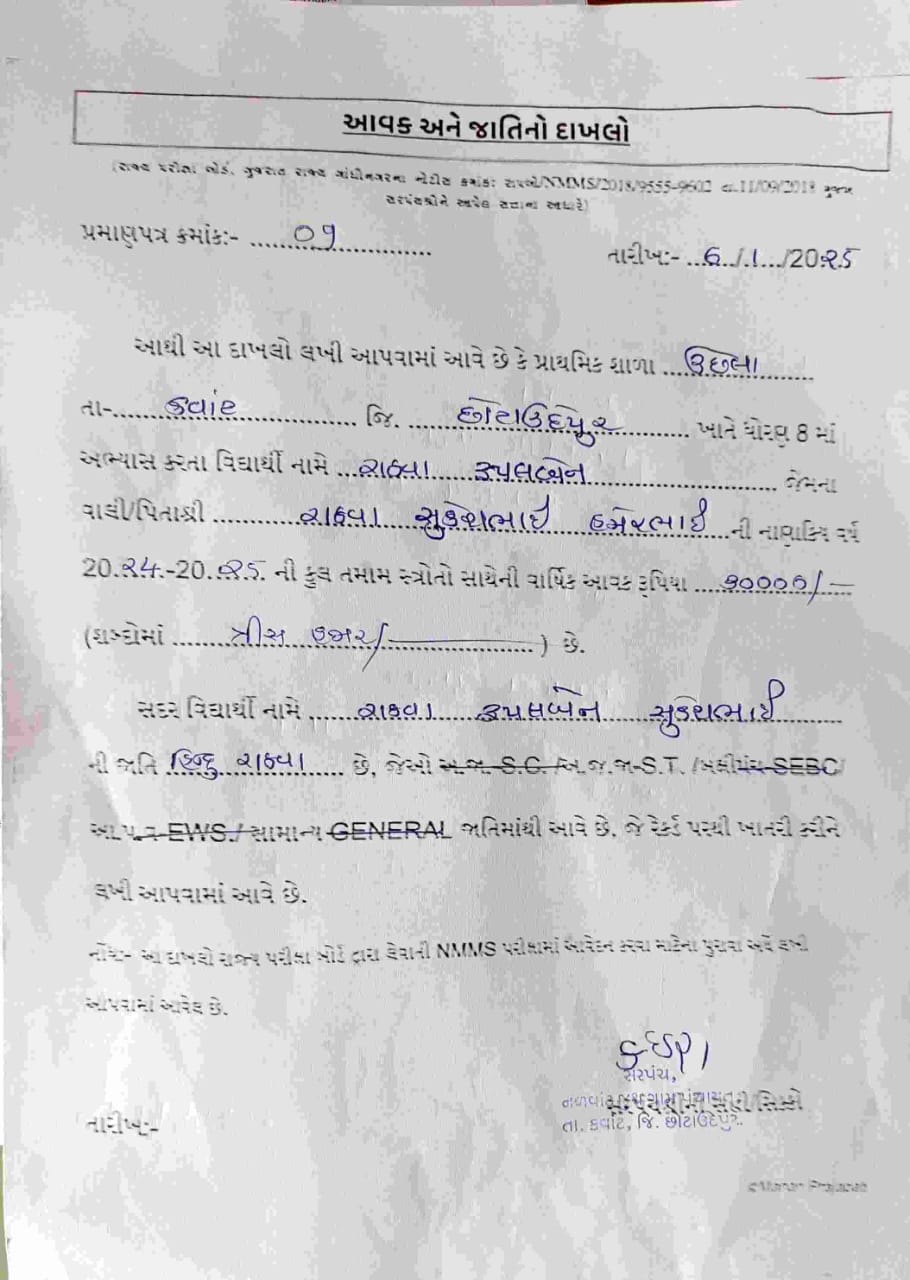 આવક અને જાતિનો દાખલો
(રાજ્ય પરીક્ષા બોર્ડ, ગુજરાત રાજ્ય ગાંધીનગરના નોટીસ ક્રમાંક: રાપબો/NMMS/2018/9555-9602 તા.11/09/2018 મુજબ
સરપંચશ્રીને આપેલ સત્તાના આધારે)
પ્રમાણપત્ર ક્રમાંક:- ......૦૧..................
તારીખ:- ..૬../.૧.../20૨૫
આથી આ દાખલો લખી આપવામાં આવે છે કે પ્રાથમિક શાળા ...ઉછલા......
તા-.......કવાંટ............ જિ. ......છોટાઉદેપુર........ ખાતે ધોરણ 8 માં
અભ્યાસ કરતા વિદ્યાર્થી નામે ...રાઠવા રૂપલબેન........................ જેમના
વાલી/પિતાશ્રી ............રાઠવા સુકેશભાઈ હમેરભાઈ...ની નાણાકિય વર્ષ
20.૨૪.-20.૨૫. ની કુલ તમામ સ્ત્રોતો સાથેની વાર્ષિક આવક રૂપિયા ....૩૦૦૦૦/-
(શબ્દોમાં ........ત્રીસ હજાર/-................) છે.
સદર વિદ્યાર્થી નામે ......રાઠવા રૂપલબેન સુકેશભાઈ......
ની જાતિ હિન્દુ રાઠવા..... છે, જેઓ અ.જા. S.C. /અ.જ.જા-S.T. /બક્ષીપંચ SEBC/
આ.પ.વ EWS / સામાન્ય GENERAL જાતિમાંથી આવે છે. જે રેકર્ડ પરથી ખાતરી કરીને
લખી આપવામાં આવે છે.
નોંધ:- આ દાખલો રાજ્ય પરીક્ષા બોર્ડ દ્વારા લેવાતી NMMS પરીક્ષામાં આવેદન કરવા માટેના પુરાવા અર્થે લખી
આપવામાં આવેલ છે.
સરપંચ,
સરપંચશ્રીની સહી/સિક્કો
તા. કવાંટ, જિ. છોટાઉદેપુર.
તારીખ:-
©Manan Prajapati